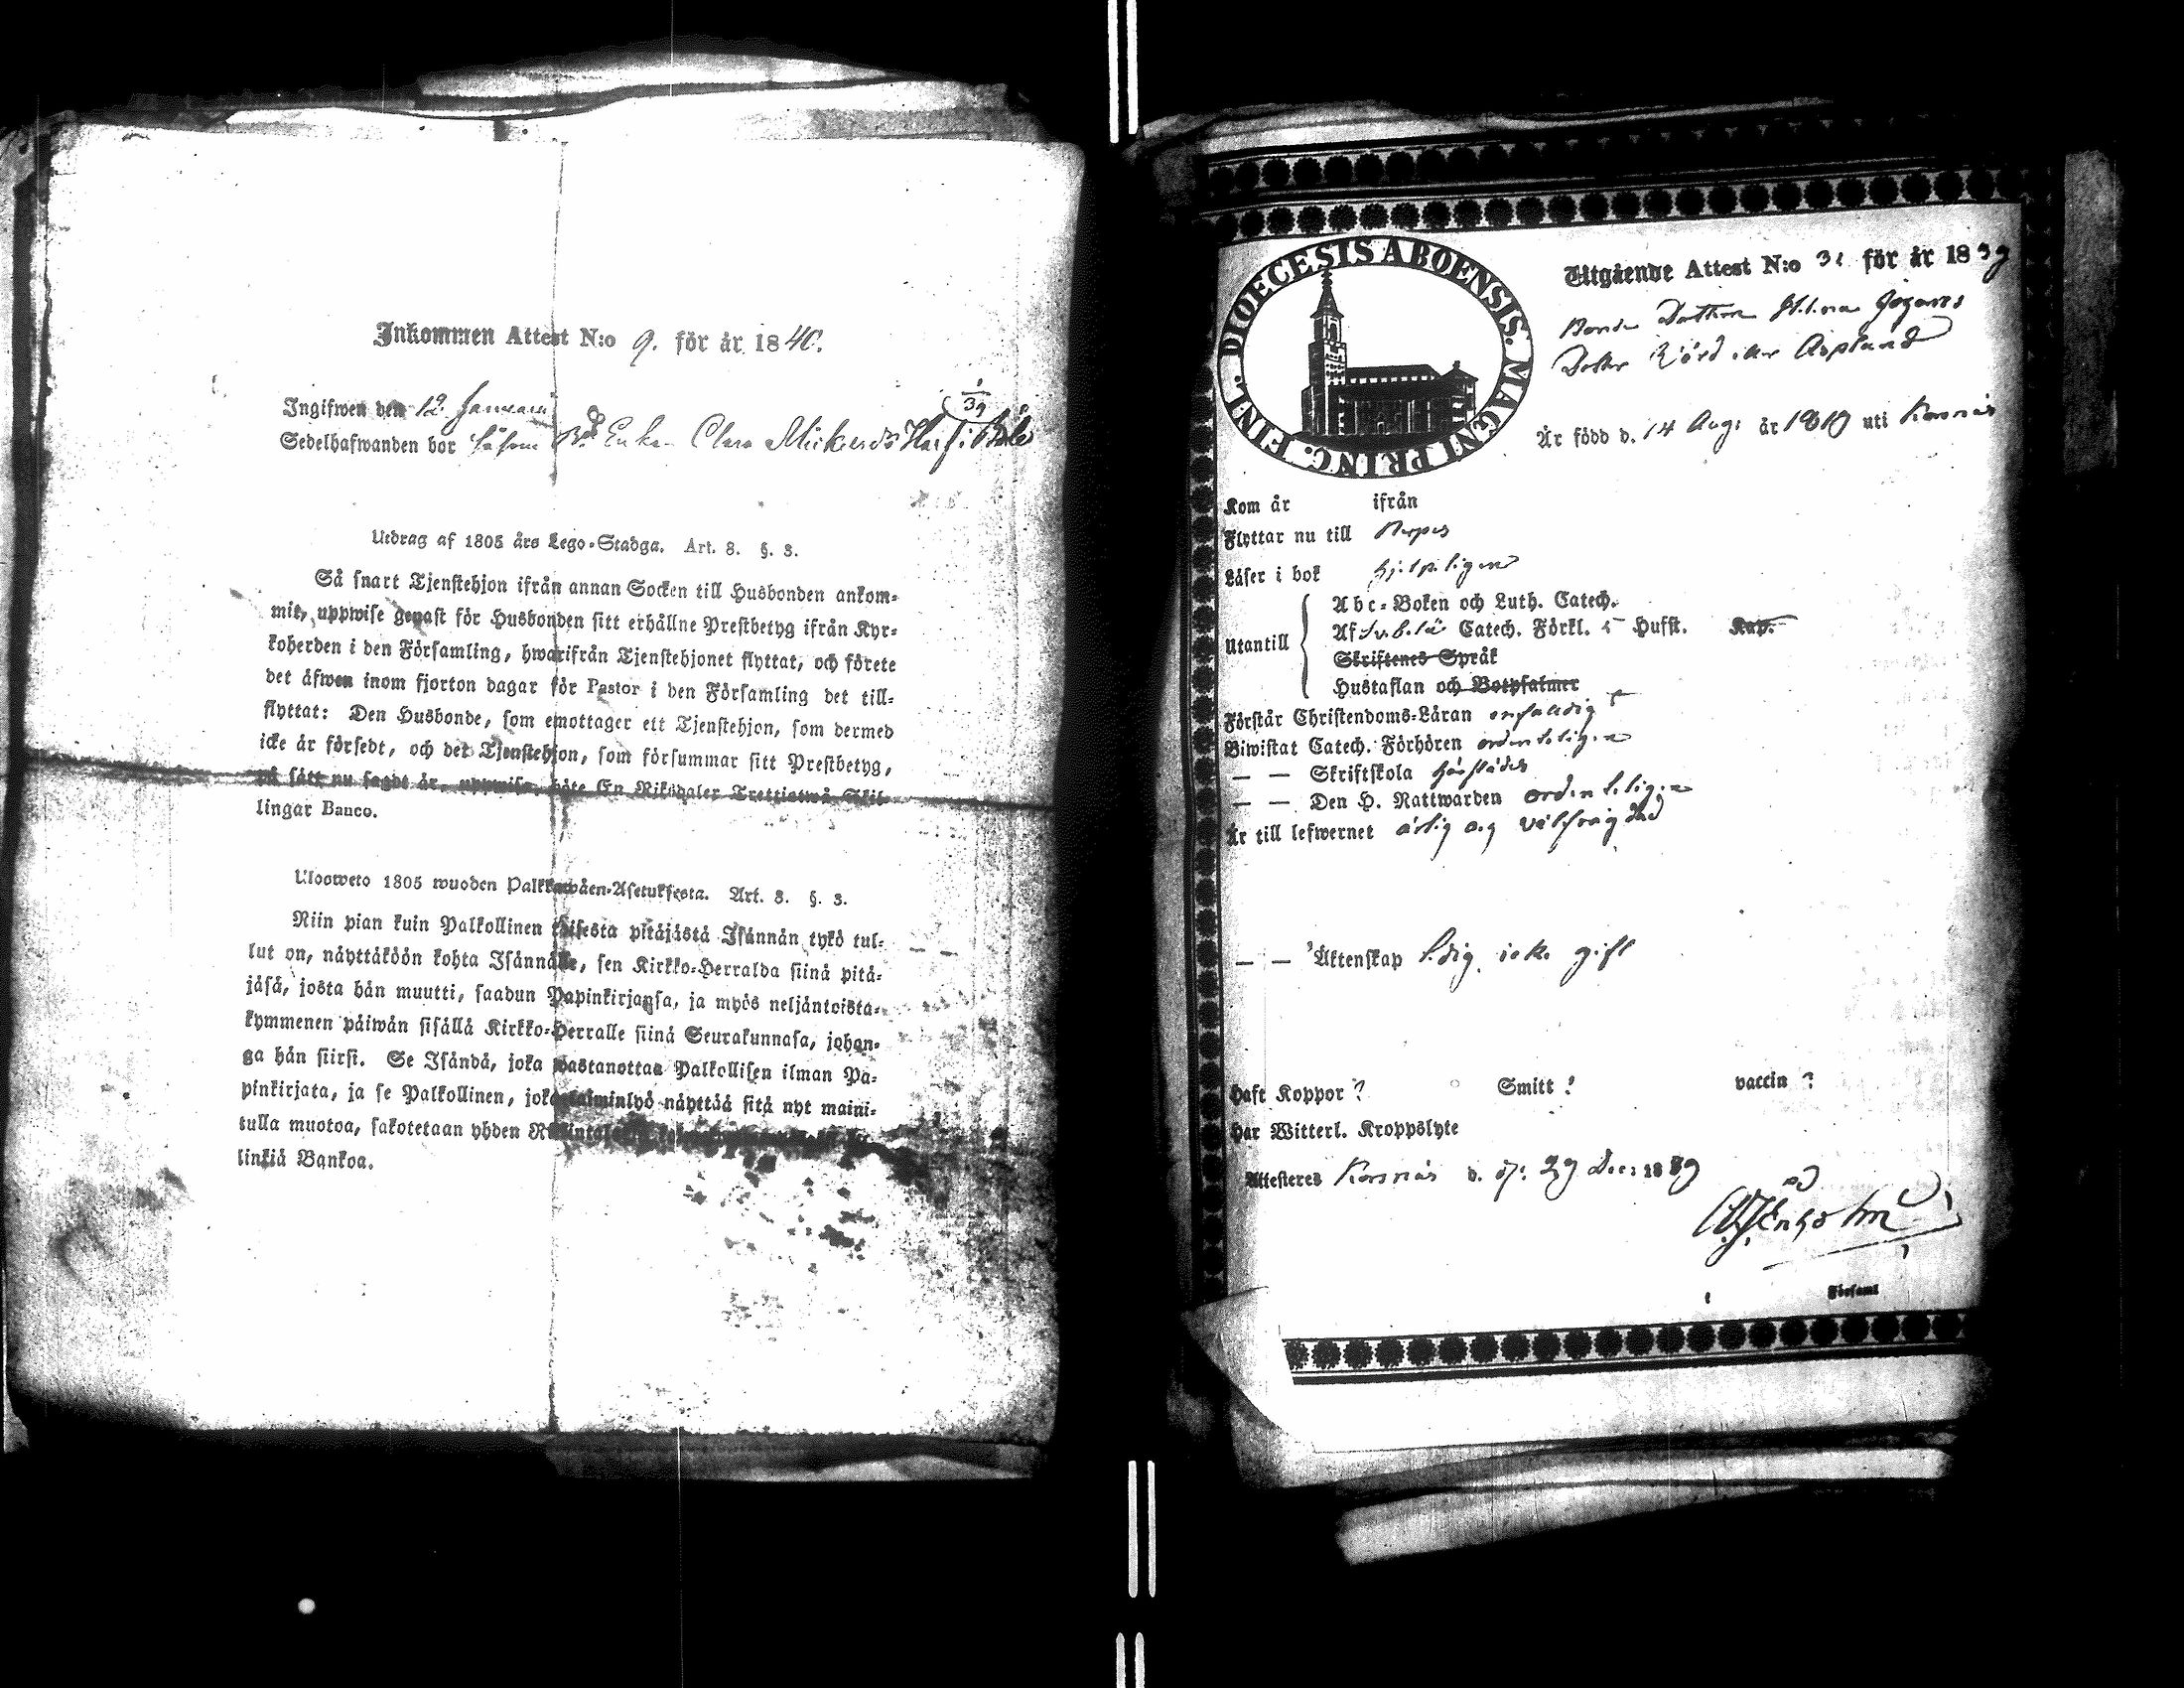 Inkommen Attest N:o 9. för år 1840.
Ingifwen den 12 Januarii
Sedelhafwanden bor såsom Enkan Clara i
1/39
Utdrag af 1805 års Lego-Stadga. Art. 8. §. 3.
Så snart Tjenstehjon ifrån annan Socken till Husbonden ankom-
mit, uppwise genast för Husbonden sitt erhållne Prestbetyg ifrån Kyr-
koherden i den Församling, hwarifrån Tjenstehjonet flyttat, och förete
det äfwen inom fjorton dagar för Pastor i den Församling det till-
flyttat: Den Husbonde, som emottager ett Tjenstehjon, som dermed
icke är försedt, och det Tjenstehjon, som försummar sitt Prestbetyg,
på sätt nu sagdt är, uppwisa, böte En Riksdaler Trettiotwå Skil-
lingar Banco.
Ulosweto 1805 wuoden Palkkawäen-Asetuksesta. Art. 8. §. 3.
Niin pian kuin Palkollinen toisesta pitäjästä Isännän tykö tul-
lut on, näyttäköön kohta Isännälle, sen Kirkko-Herralda siinä pitä-
jäsä, josta hän muutti, saadun Papinkirjansa, ja myös neljäntoista-
kymmenen päiwän sisällä Kirkko-Herralle siinä Seurakunnasa, johon-
ga hän siirsi. Se Isändä, joka wastanottaa Palkollisen ilman Pa-
pinkirjata, ja se Palkollinen, joka laiminlyö näyttää sitä nyt maini-
tulla muotoa, sakotetaan yhden
linkiä Bankoa.
DIOECESIS ABOENSIS. MAGNI PRINC. FINL.
Utgående Attest N:o 31 för år 1839
Bonde Dottren Stina
Dotter Asplund
Är född d. 14 Aug: år 1819 uti Korsnäs
Kom år ifrån
Flyttar nu till Nerpes
Läser i bok hjelpeligen
Utantill
Abc-Boken och Luth. Catech.
Af Svebelii Catech. Förkl. 5 Hufst. Kap.
Skriftenes Språk
Hustaflan och Botpsalmer
Förstår Christendoms-Läran enfaldig t
Biwistat Catech. Förhören ordenteligen
— — Skriftskola härstädes
— — Den H. Nattwarden ordenteligen
Är till lefwernet ärlig och välfrägdad
— — Äktenskap ledig, icke gift
Haft Koppor ? Smitt ? vaccin ?
Har Witterl. Kroppslyte
Attesteres Korsnäs d. 29 Dec: 1839
Församl